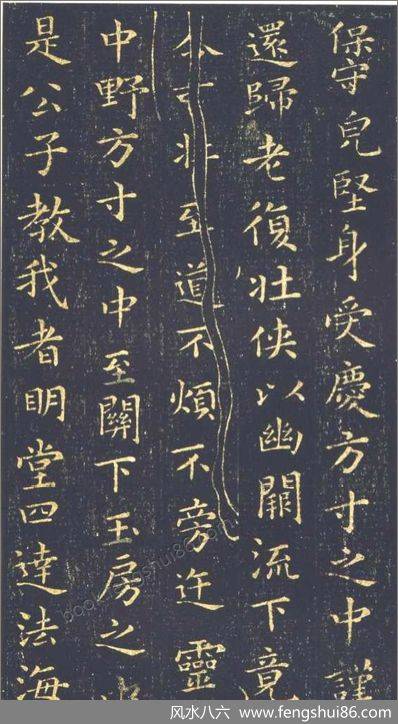 保守皃堅身受慶方寸之中謹
還歸老復壯俠以幽闕流下竟
令可壯至道不煩不旁迕靈
中野方寸之中至關下玉房之
是公子教我者明堂四達法海
风水八六：www.fengshui86.com